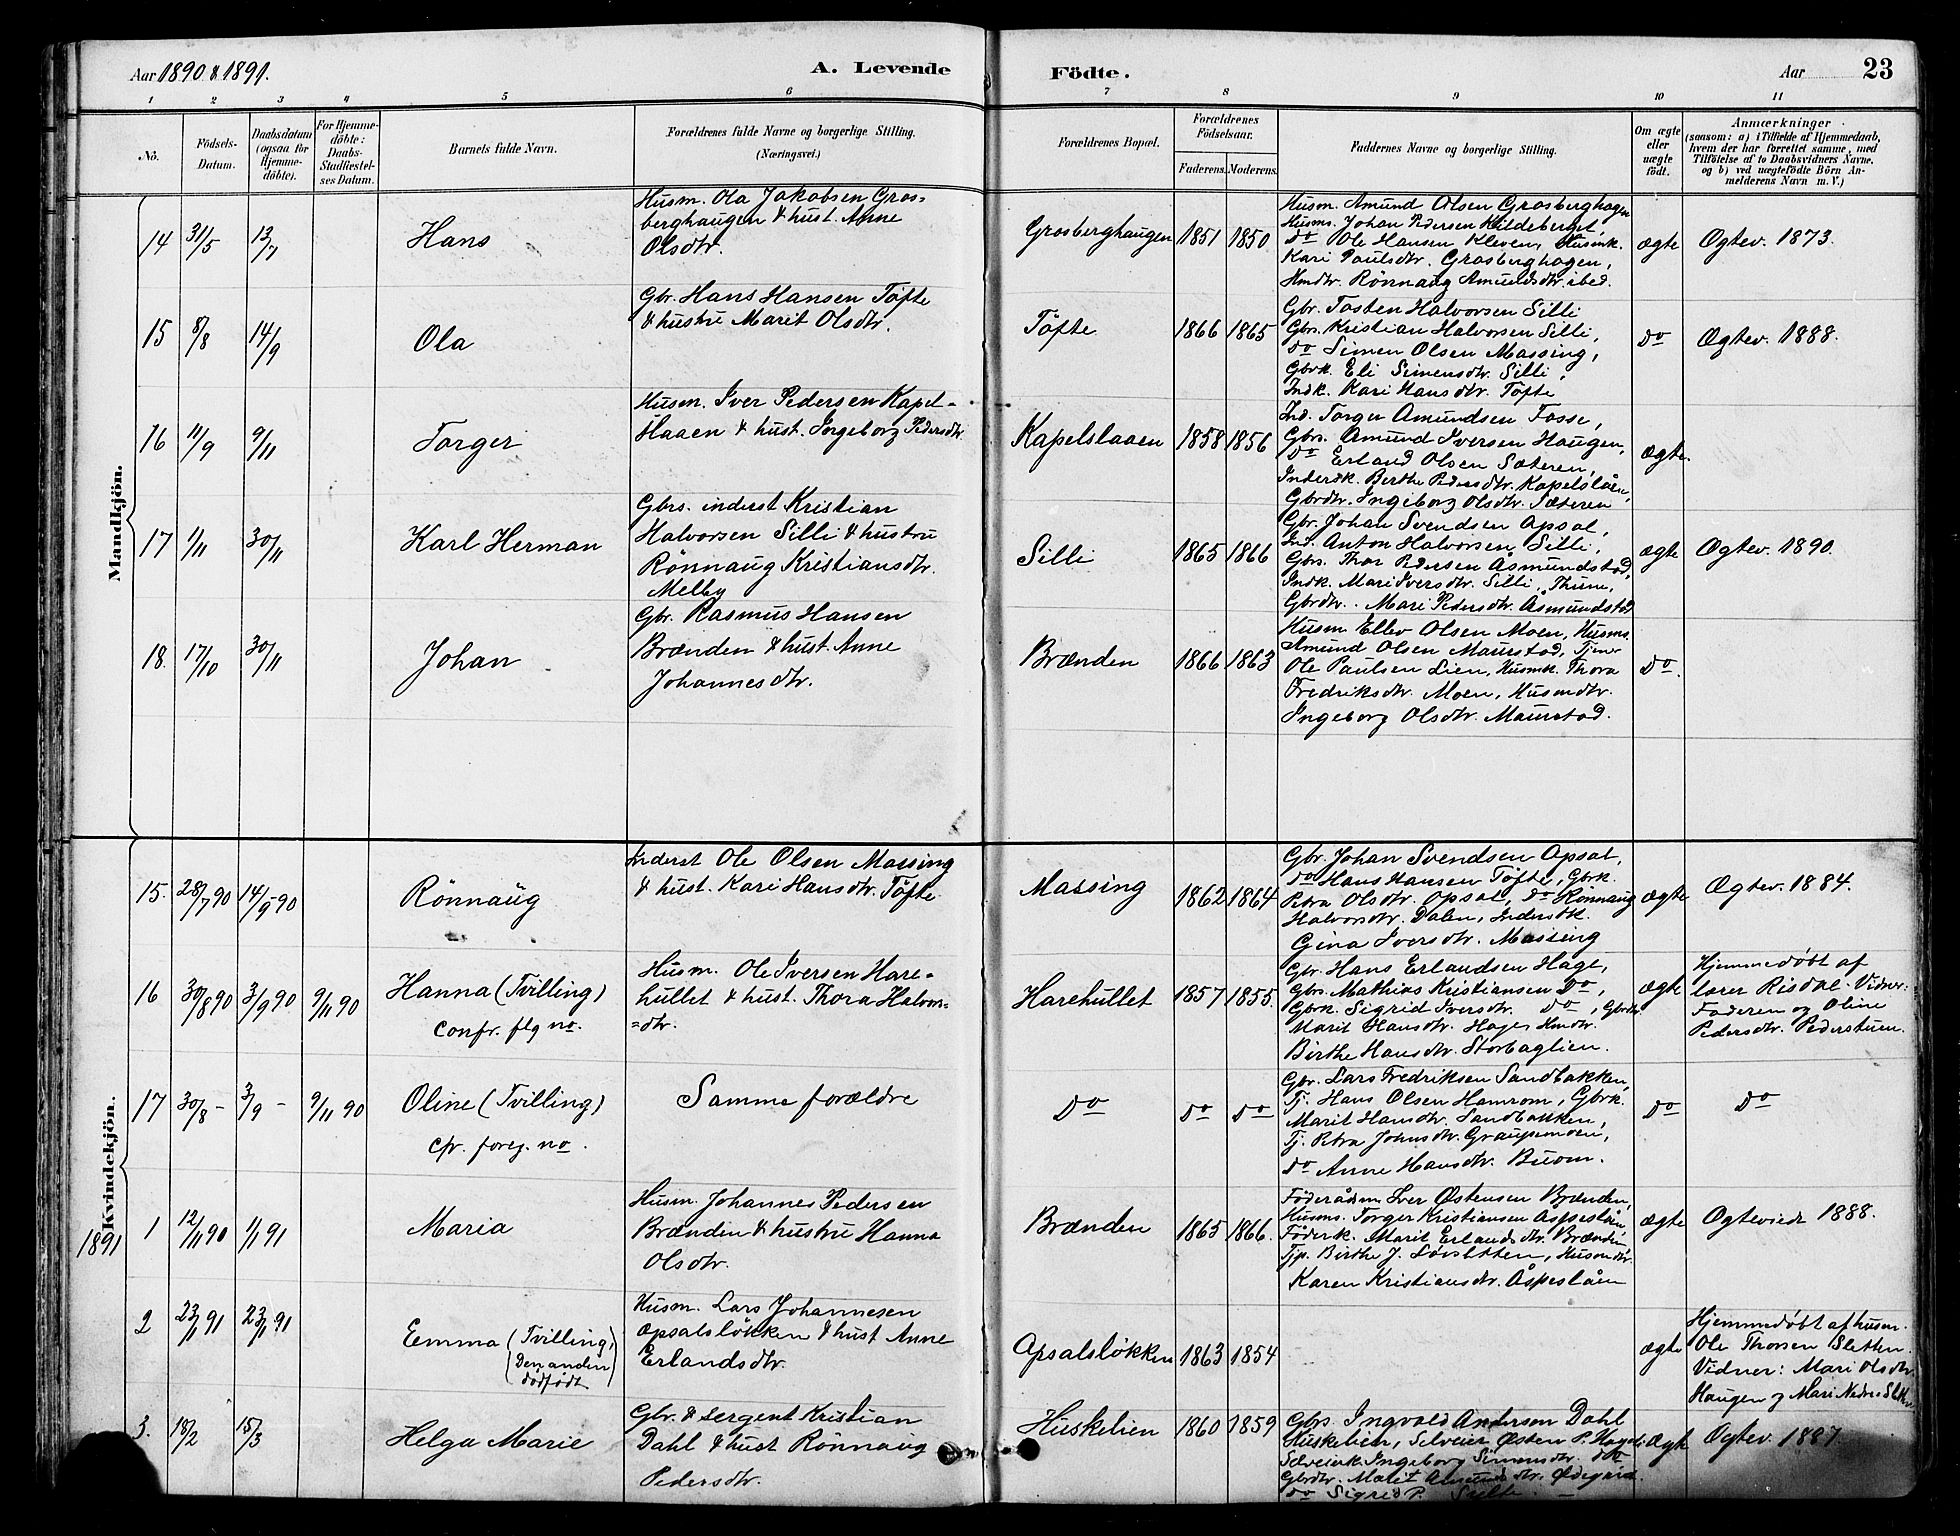 Aar 1890 & 1891.
A. Levende Födte.
Aar
23
1 2 3 4 5 6 7 8 9 10 11
No.
Födsels-
Datum.
Daabsdatum
(ogsaa for
Hjemme-
döbte).
For Hjemme-
döbte:
Daabs-
Stadfæstel-
ses Datum.
Barnets fulde Navn.
Forældrenes fulde Navne og borgerlige Stilling.
(Næringsvei.)
Forældrenes Bopæl.
Forældrenes
Födselsaar.
Faderens. Moderens.
Faddernes Navne og borgerlige Stilling.
Om ægte
eller
uægte
födt.
Anmærkninger
(saasom: a) i Tilfælde af Hjemmedaab,
hvem der har forrettet samme, med
Tilföielse af to Daabsvidners Navne,
og b) ved uægtefödte Börn An-
melderens Navn m. V.)
Mandkjön.
14 31/5 13/7
Hans
Husm. Ola Jakobsen Gros-
berghaugen & hust. Anne
Olsdtr.
Grosberghaugen 1851 1850
Husm. Amund Olsen Grosberghagen
Husms. Johan Pedersen Kildeberget,
do Ole Hansen Kleven, Husmk.
Kari Paulsdtr. Grosberghagen,
Hmdtr. Rönnaug Amundsdtr. ibed.
ægte
Ogtev. 1873.
15 8/8 14/9
Ola
Gbr. Hans Hansen Tøfte
& hustru Marit Olsdtr.
Tøfte 1866 1865
Gbr. Tosten Halvorsen Silli
Gbrs. Kristian Halvorsen Silli,
do Simen Olsen Massing,
Gbrk. Eli Simensdtr. Silli,
Indk. Kari Hansdtr. Tøfte
do
Ægtev. 1888.
16 11/9 9/11
Torger
Husm. Iver Pedersen Kapel-
slaaen & hust. Ingeborg Pedersdtr
Kapelslaaen 1858 1856
Ind. Torger Amundsen Fosse,
Gbrs. Amund Iversen Haugen,
do Erland Olsen Sæteren,
Inderstk. Berthe Pedersdtr. Kapelslåen,
Gbrdtr. Ingeborg Olsdtr. Sæteren
ægte.
17 1/11 30/11
Karl Herman
Gbrs. inderst Kristian
Halvorsen Silli & hustru
Rønnaug Kristiansdtr.
Melby
Silli 1865 1866
Gbr. Johan Svendsen Opsal,
Ind. Anton Halvorsen Silli,
Gbrs. Thor Pedersen Åsmundstad,
Indk. Mari Iversdtr. Silli, Thune,
Gbrdtr. Mari Pedersdtr. Åsmundstad
ægte
Ogtev. 1890.
18. 17/10 30/11
Johan
Gbr. Rasmus Hansen
Brænden & hust. Anne
Johannesdtr.
Brænden 1866 1863
Husm Ellev Olsen Moen, Husms.
Amund Olsen Maurstad, Tjener
Ole Paulsen Lien, Husmk. Thora
Fredriksdtr. Moen, Husmdtr.
Ingeborg Olsdtr. Maurstad.
do.
Kvindekjön.
15. 28/7 90 14/9 90
Rönnaug
Inderst Ole Olsen Massing
& hust. Kari Hansdtr. Tøfte
Massing 1862 1864
Gbr. Johan Svendsen Opsal,
do Hans Hansen Tøfte, Gbrk.
Petra Olsdtr. Opsal, do Rönnaug
Halvorsdtr. Dalen, Inderstk.
Gina Iversdtr. Massing
ægte
Ægtev. 1884.
16 30/8 90 3/9 90 9/11 90
Hanna (Tvilling)
confr. flg no.
Husm. Ole Iversen Hare-
hullet & hust. Thora Halvors-
=dtr.
Harehullet 1857 1855.
Gbr. Hans Erlandsen Hage,
Gbrs. Mathias Kristiansen do,
Gbrk. Sigrid Iversdtr. do, Gbrdtr
Marit Hansdtr. Hage, Hmdtr.
Birthe Hansdtr. Storbaglien.
ægte
Hjemmedøbt af
lærer Risdal. Vidner:
Faderen og Oline
Pedersdtr. Pederstuen.
17 30/8 - 3/9 - 9/11 90
Oline (Tvilling)
cfr. foreg. no.
Samme forældre
do do do
Gbr. Lars Fredriksen Sandbakken,
Tj. Hans Olsen Hamrom, Gbrk.
Marit Hansdtr. Sandbakken,
Tj. Petra Johnsdtr. Graupemoen,
do Anne Hansdtr. Buom.
do
do
1891
1 12/11 90 1/1 91
Maria
Husm. Johannes Pedersen
Brænden & hustru Hanna
Olsdtr.
Brænden 1865 1866.
Føderådsm. Iver Østensen Brænden,
Husms. Torger Kristiansen Åspeslåen
Føderk. Marit Erlandsdtr. Brænden
Tjp. Birthe J. , Husmdtr.
Karen Kristiansdtr. Åspeslåen
ægte
Ogteviede 1888.
2 23/1 91 23/1 91
Emma (Tvilling,
Den anden
dødfødt)
Husm. Lars Johannesen
Opsalsløkken & hust Anne
Erlandsdtr.
Opsalsløkken 1863 1854
ægte
Hjemmedøbt af husm.
Ole Thorsen Sletten.
Vidner: Mari Olsdtr
Haugen og Mari Nedre-Slette
3. 18/2 15/3
Helga Marie
Gbr. & sergent Kristian
Dahl & hust Rönnaug
Pedersdtr.
Huskelien 1860 1859
Gbrs. Ingvald Anderson Dahl
Huskelien, Selveier Østen P. Hage
Selveierk. Ingeborg Simensdtr. do
Gbrdtr. Marit Amundsdtr. Ødegård.
do Sigrid P.
ægte
Ogtev. 1887.